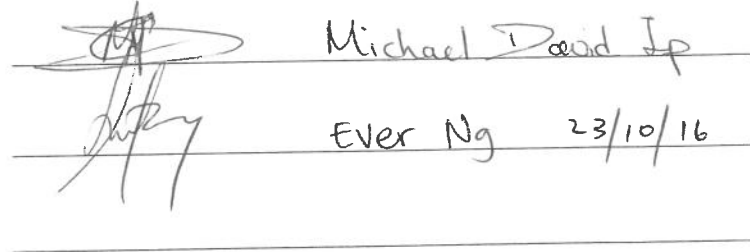 Michael David Ip
Ever Ng 23/10/16